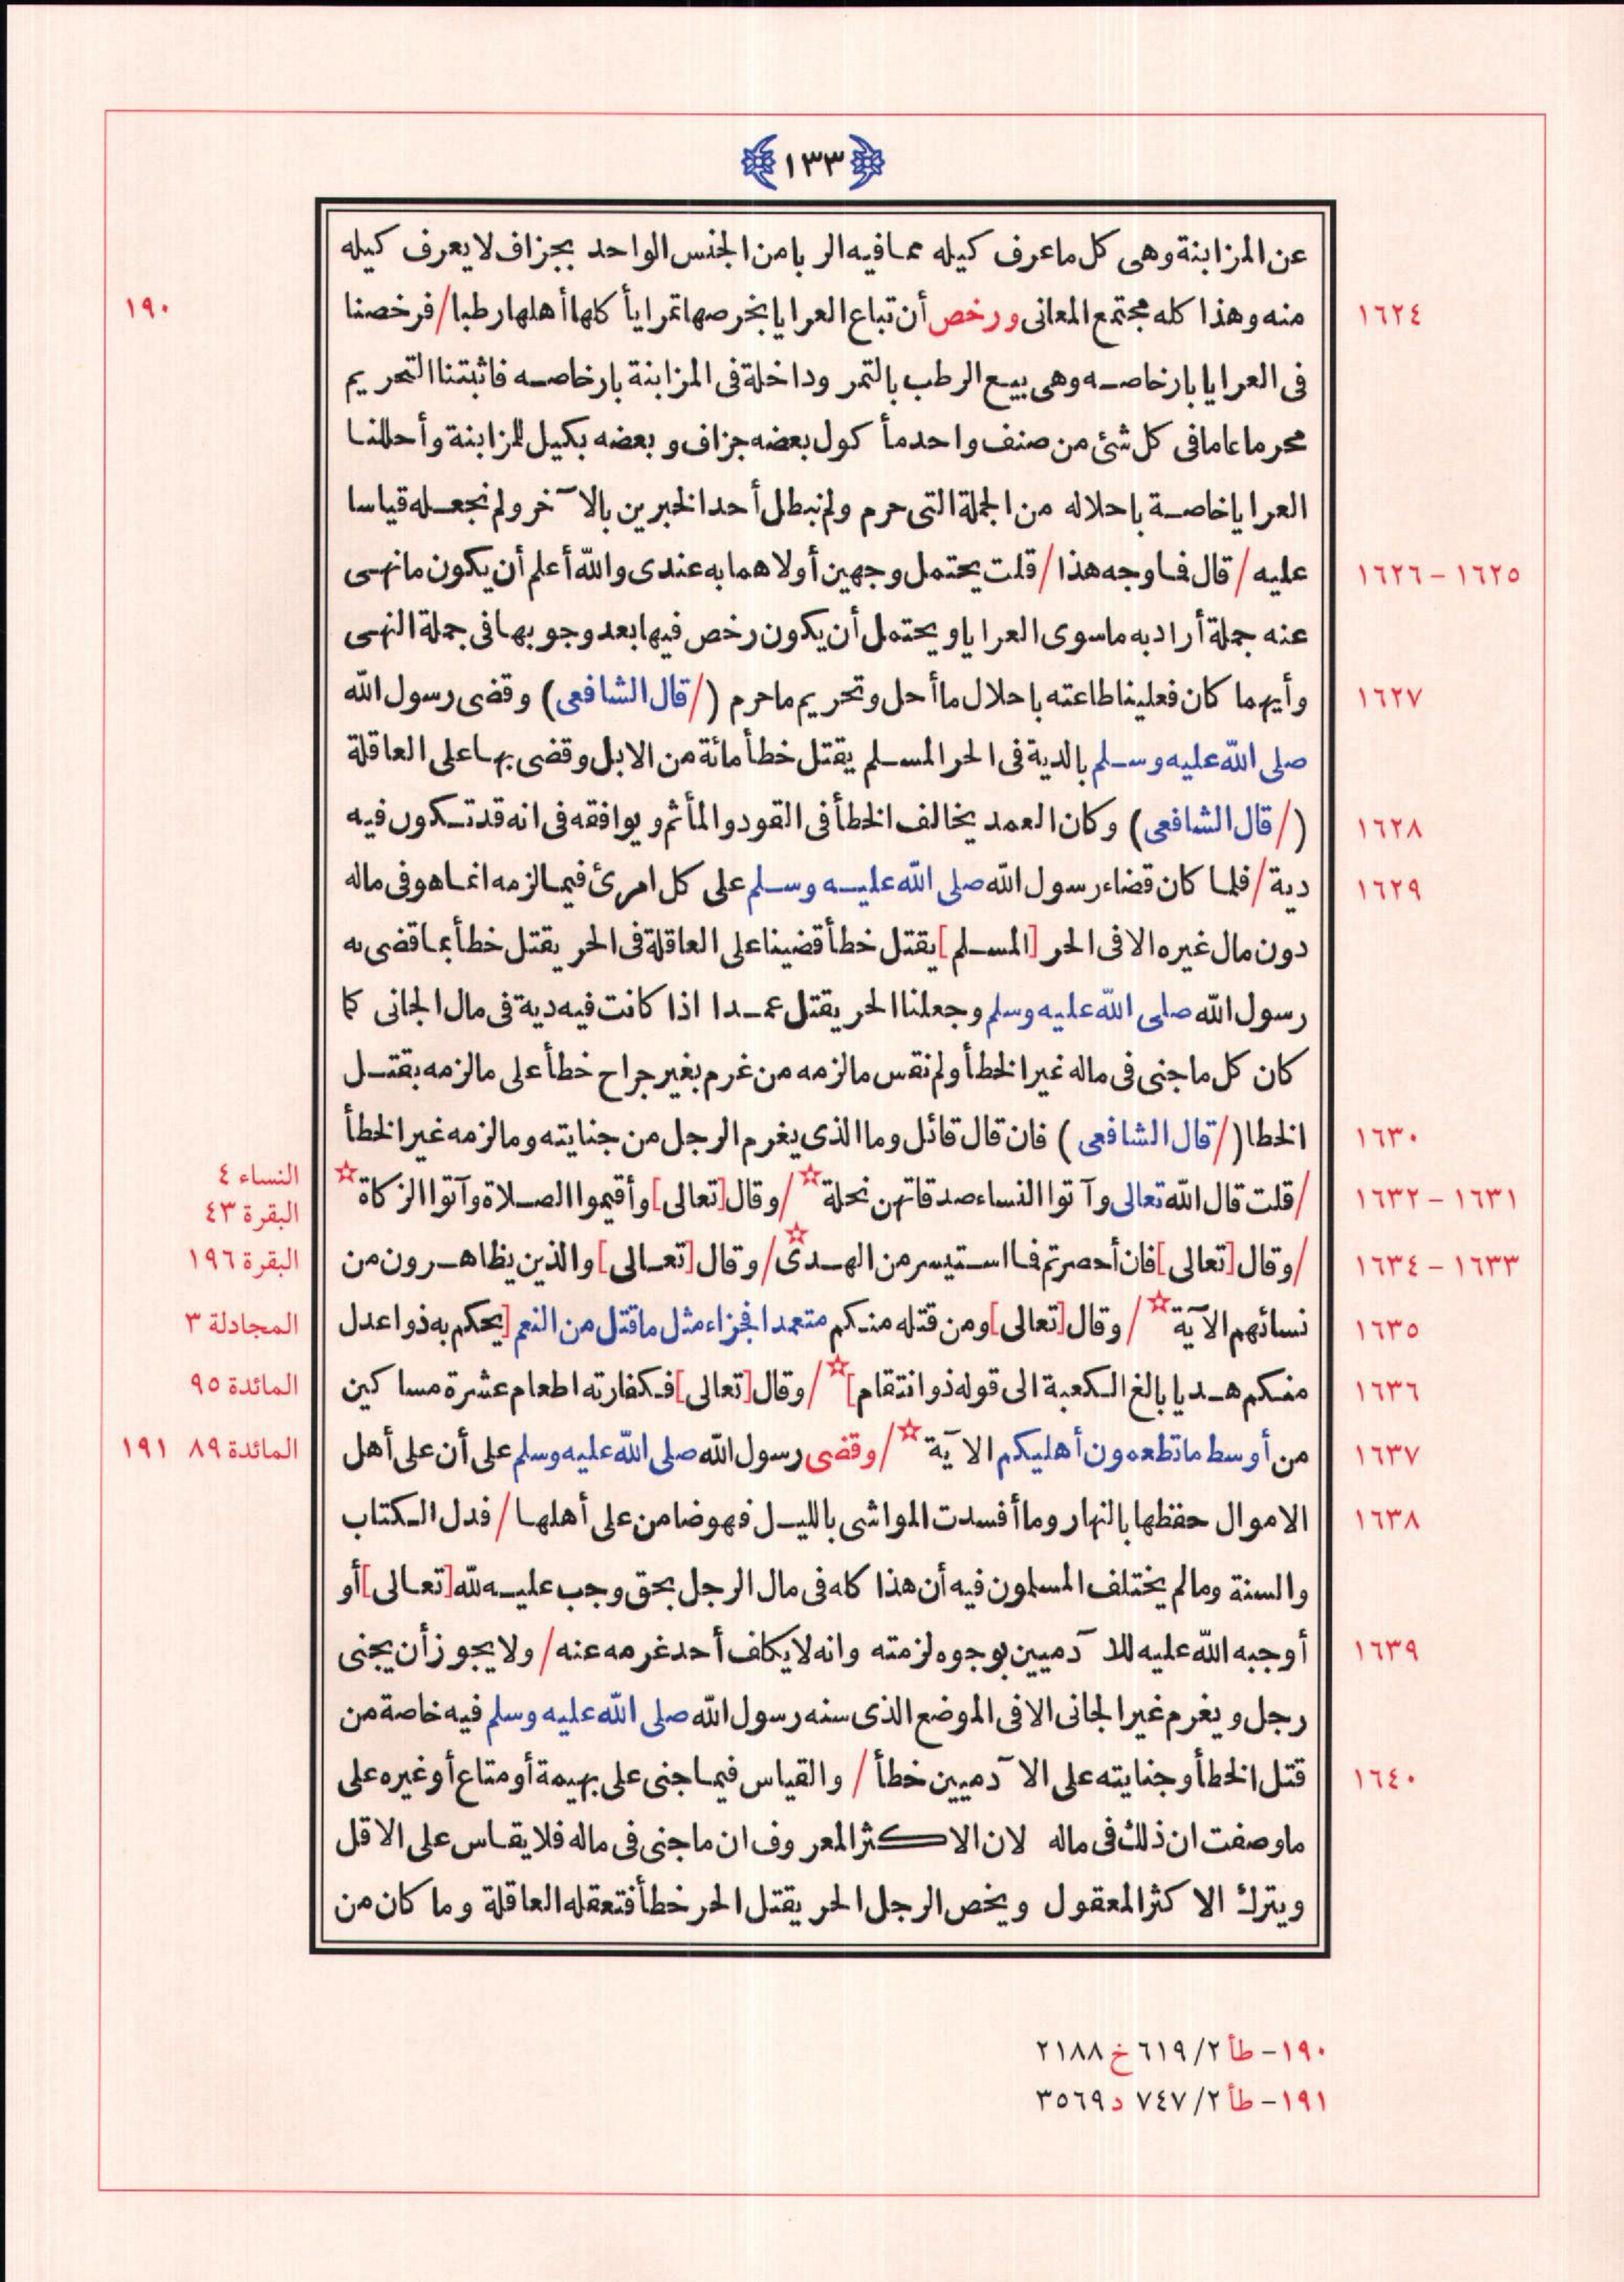 ١٣٣
عن المزابنة وهى كل ما عرف كيله مما فيه الربا من الجنس الواحد بجزاف لا يعرف كيله
١٦٢٤ منه وهذا كله مجتمع المعانى ورخص أن تباع العرايا بخرصها تمرا يأكلها أهلها رطبا / فرخصنا ١٩٠
فى العرايا بارخاصه وهى بيع الرطب بالتمر وداخلة فى المزابنة بارخاصه فاثبتنا التحريم
محرما عاما فى كل شئ من صنف واحد مأكول بعضه جزاف وبعضه بكيل للمزابنة وأحللنا
العرايا خاصة باحلاله من الجملة التى حرم ولم نبطل أحد الخبرين بالآخر ولم نجعله قياسا
١٦٢٥ – ١٦٢٦ عليه / قال فما وجه هذا / قلت يحتمل وجهين أولاهما به عندى والله أعلم أن يكون ما نهى
عنه جملة أراد به ما سوى العرايا ويحتمل أن يكون رخص فيها بعد وجوبها فى جملة النهى
١٦٢٧ وأيهما كان فعلينا طاعته باحلال ما أحل وتحريم ما حرم (/ قال الشافعى) وقضى رسول الله
صلى الله عليه وسلم بالدية فى الحر المسلم يقتل خطأ مائة من الابل وقضى بها على العاقلة
١٦٢٨ (/ قال الشافعى) وكان العمد يخالف الخطأ فى القود والمأثم ويوافقه فى انه قد تكون فيه
١٦٢٩ دية / فلما كان قضاء رسول الله صلى الله عليه وسلم على كل امرئ فيما لزمه انما هو فى ماله
دون مال غيره الا فى الحر [المسلم] يقتل خطأ قضينا على العاقلة فى الحر يقتل خطأ بما قضى به
رسول الله صلى الله عليه وسلم وجعلنا الحر يقتل عمدا اذا كانت فيه دية فى مال الجانى كما
كان كل ما جنى فى ماله غير الخطأ ولم نقس ما لزمه من غرم بغير جراح خطأ على ما لزمه بقتل
١٦٣٠ الخطا (/ قال الشافعى) فان قال قائل وما الذى يغرم الرجل من جنايته وما لزمه غير الخطأ
١٦٣١ – ١٦٣٢ / قلت قال الله تعالى وآتوا النساء صدقاتهن نحلة ☆ / وقال [تعالى] وأقيموا الصلاة وآتوا الزكاة ☆ النساء ٤ البقرة ٤٣
١٦٣٣ – ١٦٣٤ / وقال [تعالى] فان أحصرتم فما استيسر من الهدى ☆ / وقال [تعالى] والذين يظاهرون من البقرة ١٩٦
١٦٣٥ نسائهم الآية ☆ / وقال [تعالى] ومن قتله منكم متعمدا فجزاء مثل ما قتل من النعم [يحكم به ذوا عدل المجادلة ٣
١٦٣٦ منكم هديا بالغ الكعبة الى قوله ذو انتقام] ☆ / وقال [تعالى] فكفارته اطعام عشرة مساكين المائدة ٩٥
١٦٣٧ من أوسط ما تطعمون أهليكم الآية ☆ / وقضى رسول الله صلى الله عليه وسلم على أن على أهل المائدة ٨٩ ١٩١
١٦٣٨ الاموال حفظها بالنهار وما أفسدت المواشى بالليل فهو ضامن على أهلها / فدل الكتاب
والسنة وما لم يختلف المسلمون فيه أن هذا كله فى مال الرجل بحق وجب عليه لله [تعالى] أو
١٦٣٩ أوجبه الله عليه للآدميين بوجوه لزمته وانه لا يكلف أحد غرمه عنه / ولا يجوز أن يجنى
رجل ويغرم غير الجانى الا فى الموضع الذى سنه رسول الله صلى الله عليه وسلم فيه خاصة من
١٦٤٠ قتل الخطأ وجنايته على الآدميين خطأ / والقياس فيما جنى على بهيمة أو متاع أو غيره على
ما وصفت ان ذلك فى ماله لان الاكثر المعروف ان ما جنى فى ماله فلا يقاس على الاقل
ويترك الاكثر المعقول ويخص الرجل الحر يقتل الحر خطأ فتعقله العاقلة وما كان من
١٩٠– طأ ٢/ ٦١٩ خ ٢١٨٨
١٩١– طأ ٢/ ٧٤٧ د ٣٥٦٩